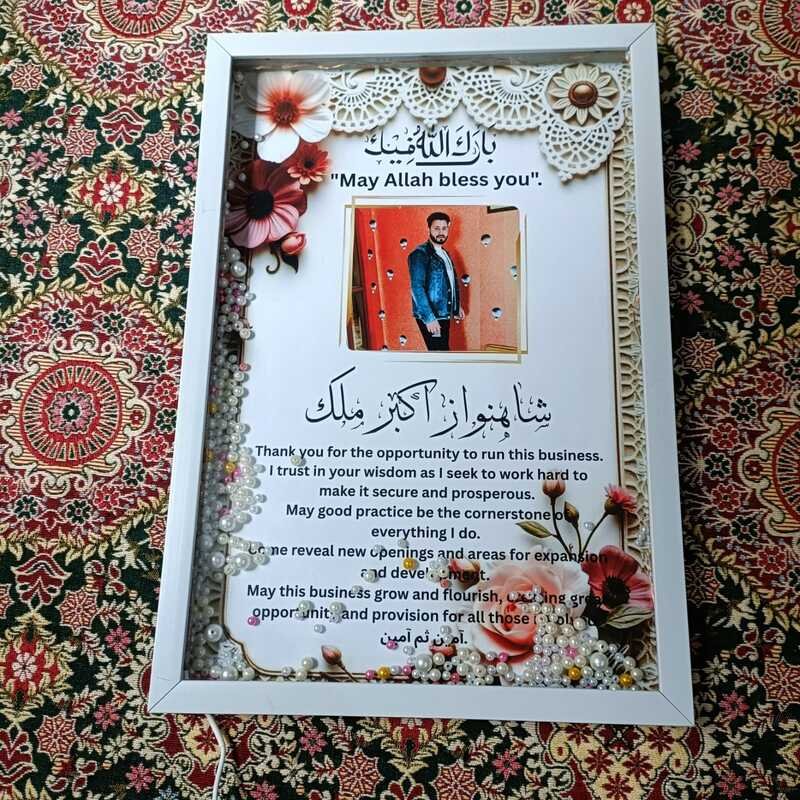 بارك الله فيك
"May Allah bless you".
شاهنواز اكبر ملك
Thank you for the opportunity to run this business.
I trust in your wisdom as I seek to work hard to
make it secure and prosperous.
May good practice be the cornerstone
everything I do.
reveal new openings and areas for expansion
and
May this business grow and flourish,
and provision for all those
آمين ثم آمين.